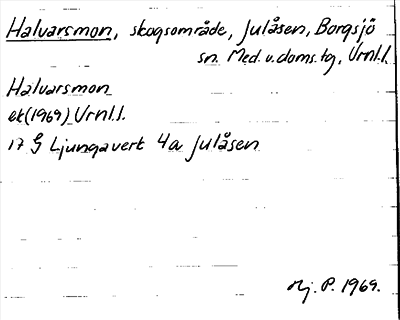 Halvarsmon, skogsområde, Julåsen, Borgsjö
sn. Med. v. doms. tg, Vrnl.l.
Halvarsmon
ek (1969) Vrnl.l.
17 G Ljungaverk 4a Julåsen
Hj. P. 1969.